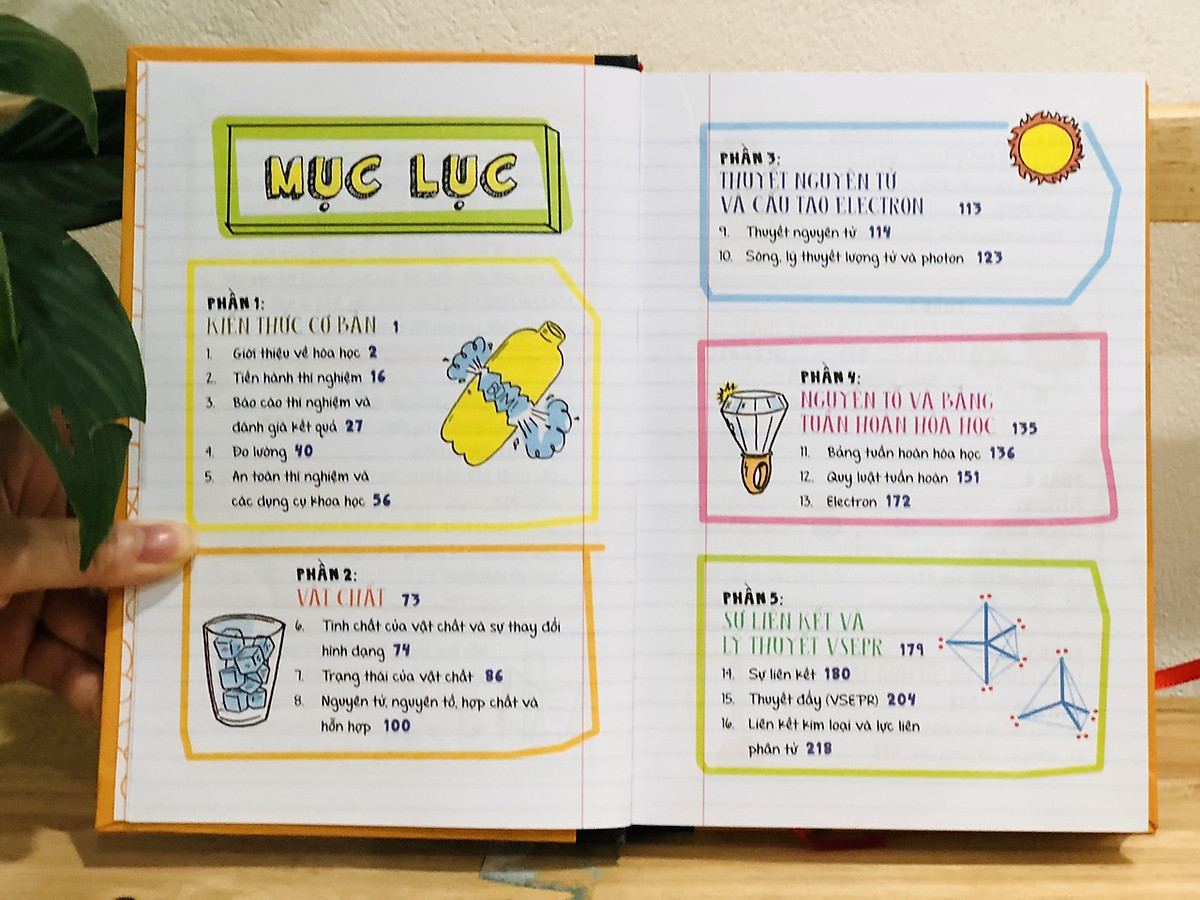 MỤC LỤC
PHẦN 1:
KIẾN THỨC CƠ BẢN 1
1. Giới thiệu về hóa học 2
2. Tiến hành thí nghiệm 16
3. Báo cáo thí nghiệm và
đánh giá kết quả 27
4. Đo lường 40
5. An toàn thí nghiệm và
các dụng cụ khoa học 56
BÙM!
PHẦN 2:
VẬT CHẤT 73
6. Tính chất của vật chất và sự thay đổi
hình dạng 74
7. Trạng thái của vật chất 86
8. Nguyên tử, nguyên tố, hợp chất và
hỗn hợp 100
PHẦN 3:
THUYẾT NGUYÊN TỬ
VÀ CẤU TẠO ELECTRON 113
9. Thuyết nguyên tử 114
10. Sóng, lý thuyết lượng tử và photon 123
PHẦN 4:
NGUYÊN TỐ VÀ BẢNG
TUẦN HOÀN HÓA HỌC 135
11. Bảng tuần hoàn hóa học 136
12. Quy luật tuần hoàn 151
13. Electron 172
PHẦN 5:
SỰ LIÊN KẾT VÀ
LÝ THUYẾT VSEPR 179
14. Sự liên kết 180
15. Thuyết đẩy (VSEPR) 204
16. Liên kết kim loại và lực liên
phân tử 218